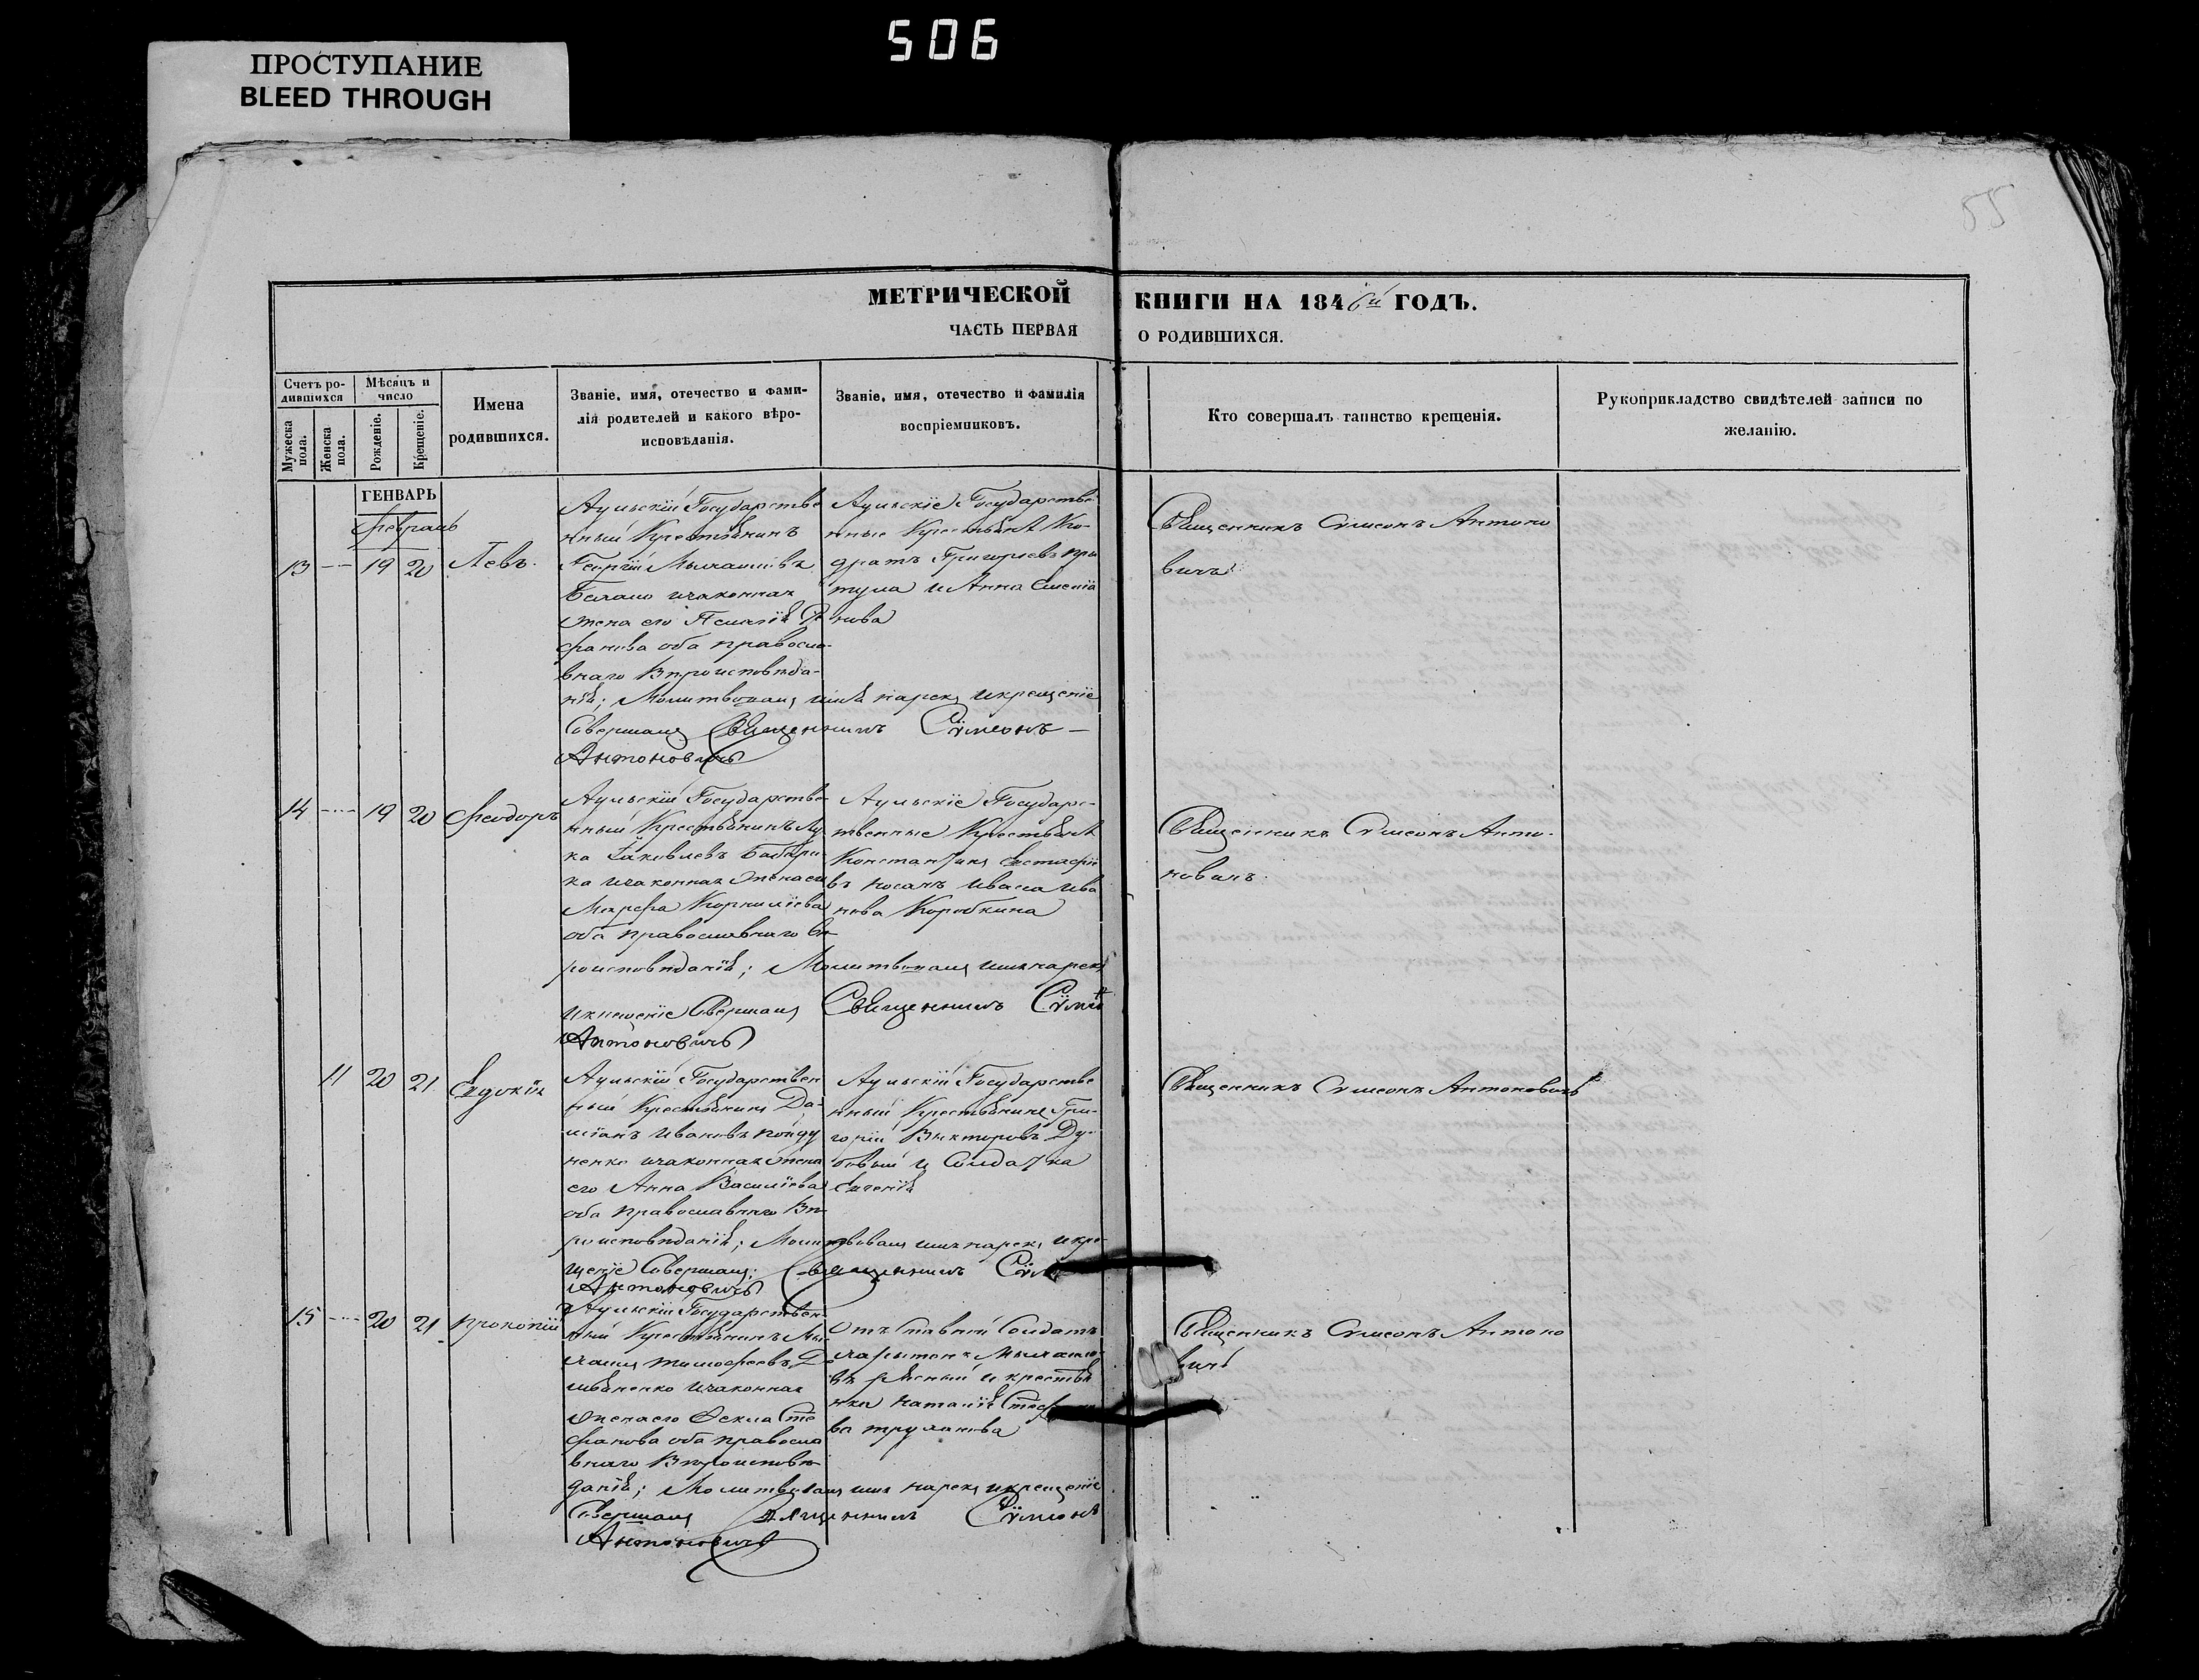 506
ПРОСТУПАНИЕ
BLEED THROUGH
55
МЕТРИЧЕСКОЙ КНИГИ НА 1846й ГОДЪ.
ЧАСТЬ ПЕРВАЯ О РОДИВШИХСЯ.
Счетъ родившихся
Мужеска пола.
Женска пола.
Мѣсяцъ и число
Рожденіе.
Крещеніе.
Имена родившихся.
Званіе, имя, отечество и фами-
лія родителей и какого вѣро-
исповѣданія.
Званіе, имя, отечество и фамилія
воспріемниковъ.
Кто совершалъ таинство крещенія.
Рукоприкладство свидѣтелей записи по
желанію.
ГЕНВАРЬ
Февраль
13 19 20 Левъ.
Аульскій Государстве
нный Крестьянинъ
Георгій
законная
жена его
оба правосла-
внаго Вѣроисповѣда-
нія; Молитвовалъ имя нарекъ и крещеніе
Совершалъ Священникъ Сѵмеонъ
Антоновичъ
Аульскіе Государстве
нные Крестьяне Ко-
дратъ Григорьевъ При
тула и Анна
нова
Священникъ Сѵмеонъ Антоно
вичъ
14 19 20 Феодоръ
Аульскій Государстве
нный Крестьянинъ Лу
ка Іаковлевъ
ка законная жена его
Марфа Корнилїева
оба православнаго Вѣ
роисповѣданія; Молитвовалъ имя нарекъ
и крещеніе Совершалъ Священникъ Сѵмео
Антоновичъ
Аульскіе Государс-
твенные Крестьяне
Константинъ Евстафїе
въ Носачъ Ива
нова Коробкина
Священникъ Сѵмеонъ Анто-
новичъ.
11 20 21 Евдокія
Аульскій Государствен
ный Крестьянинъ Да-
міанъ Ивановъ
ненко законная жена
его Анна Василїева
оба Православнаго Вѣ
роисповѣданія; Молитвовалъ имя нарекъ и кре-
щеніе Совершалъ; Священникъ Сѵме
Антоновичъ
Аульскій Государстве
нный Крестьянинъ Гри-
горій Викторовъ Ду-
бовый и Солдатка
Евгенія
Священникъ Сѵмеонъ Антоновичъ
15 20 21 Прокопій
Аульскій Государствен-
ный Крестьянинъ Ми
хаилъ Тимофеевъ
законная
жена его Фекла Сте
фанова оба правосла
внаго Вѣроисповѣ
данія; Молитвовалъ имя нарекъ и крещеніе
Совершалъ Священникъ Сѵмеонъ
Антоновичъ
Отъставный Солдатъ
Харитонъ
и крестья
нка Наталія
ва
Священникъ Сѵмеонъ Антоно
вичъ